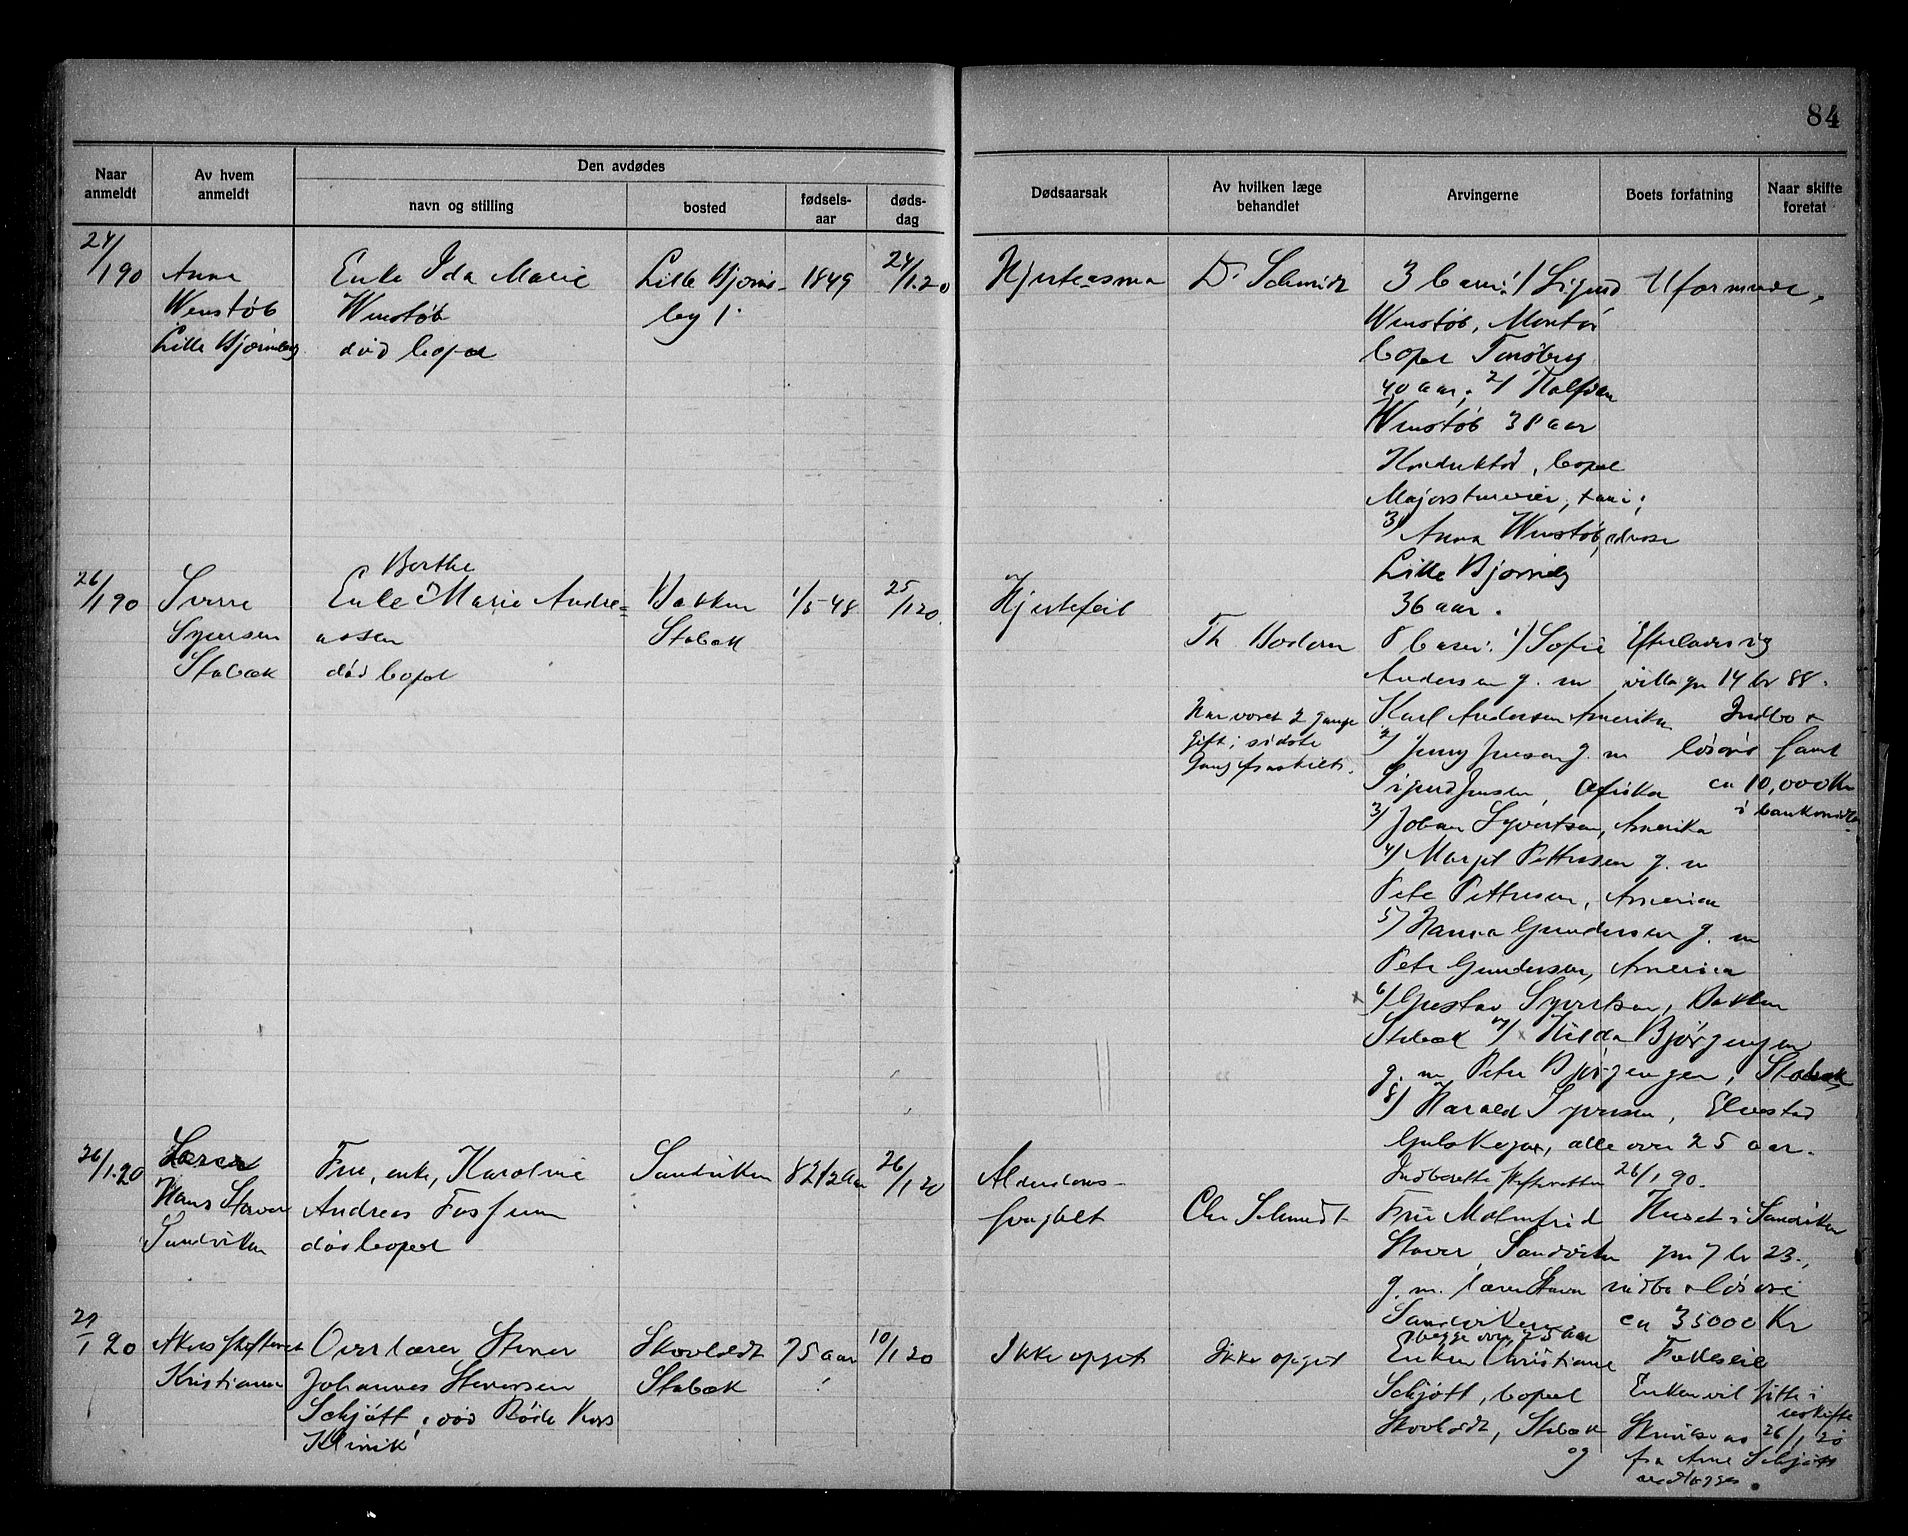 84
Naar anmeldt
Av hvem anmeldt
Den avdødes
navn og stilling
bosted
fødsels-aar
døds-dag
Dødsaarsak
Av hvilken læge behandlet
Arvingerne
Boets forfatning
Naar skifte foretat
24/1 90
Anna
Wenstøb
Lille Bjørnsby
Enke Ida Marie
Wenstøb
død bopæl
Lille Bjørns-
by 1
1849
24/1.20
Hjerteasma
Dr Schmidt
3 barn: 1/ Sigurd
Wenstøb, Montør
bopæl Tønsberg
40 aar; 2/ Halfdan
Wenstøb 38 aar
Konduktør, bopæl
Majorstuveien
3/ Anna Wenstøb, adresse
Lille Bjørnsby
36 aar.
Uformuende.
26/1 90
Sverre
Syversen
Stabæk
Berthe
Enke Marie Andre=
assen
død bopæl
Bakken
Stabæk
1/5-48
25/1 20.
Hjertefeil
Th Bodom
Har været 2 gange
gift; sidste
gang fraskilt.
8 barn: 1) Sofie
Andersen g. m
Karl Andersen Amerika
2) Jenny Jensen g. m
Sigurd Jensen, Afrika
3) Johan Syvertsen, Amerika
4) Margit Pettersen g. m
Peter Pettersen, Amerika
5) Hanna Gundersen g. m
Peter Gundersen, Amerika
6) Gustav Syvertsen, Bakken
Stabæk 7) Hilda Bjørgengen
g. m Peter Bjørgengen, Stabæk
8) Harald Syversen, Elvestad
alle over 25 aar.
Indberettet Skifteretten 26/1 90.
Efterlader sig
villa gn 14 br 88.
Indbo &
løsøre samt
ca 10,000 Kr
i bankmidler
26/1.20
Lærer
Hans Staver
Sandviken
Fru, enke, Karoline
Andreas Fossum
død bopæl
Sandviken
82 1/2 Aar
26/1 20
Alderdoms-
svaghet
Chr Schmidt
Fru Malmfrid
Staver, Sandviken
g. m. lærer Staver
Sandviken
begge over 25 aar
Huset i Sandviken
gn 7 br 23.,
indbo & løsøre
ca 35000 Kr
29/1 20
Akers skifteret
Kristiania
Overlærer Stener
Johannes Stenersen
Schjøtt; død Røde Kors
Klinik
Skovholdt
Stabæk
75 aar
!
10/1 20
Ikke opgit
Ikke opgit
Enken Christiane
Schjøtt, bopæl
Skovholdt, Stabæk
og
Fælleseie
Enken vil sitte i
uskifte
Skrivelse av 26/1 20
fra Arne Schjøtt
vedlægges.